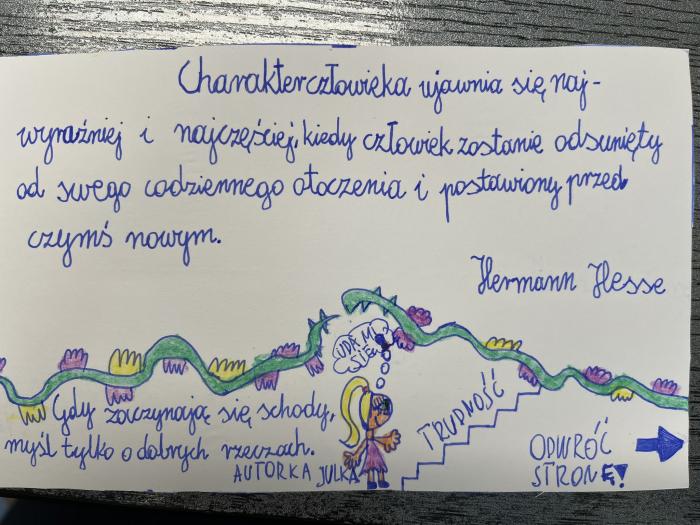 Charakter człowieka ujawnia się naj-
wyraźniej i najczęściej, kiedy człowiek zostanie odsunięty
od swego codziennego otoczenia i postawiony przed
czymś nowym.
Hermann Hesse
UDA MI
SIĘ
Gdy zaczynają się schody,
myśl tylko o dobrych rzeczach.
AUTORKA JULKA
TRUDNOŚĆ
ODWRÓĆ
STRONĘ!